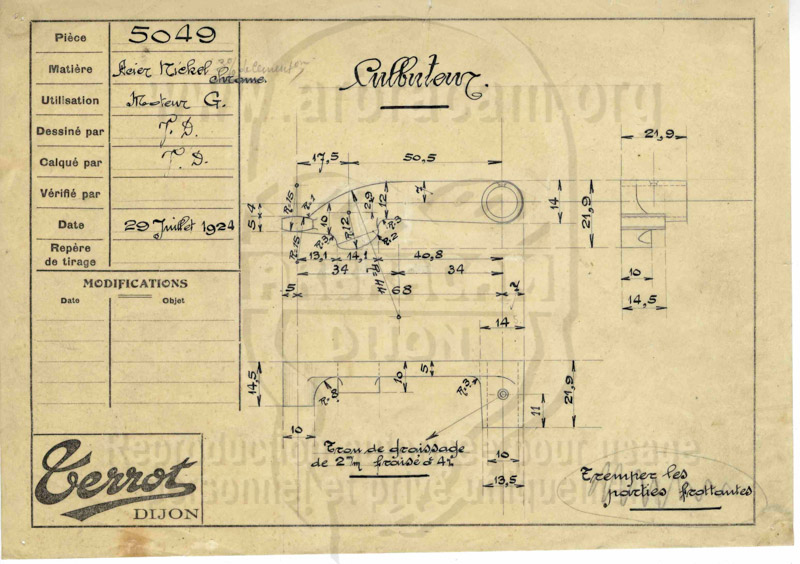 Pièce 5049
Matière Acier Nickel Chrome.
Utilisation Moteur G.
Dessiné par J. D.
Calqué par J. D.
Vérifié par
Date 29 Juillet 1924
Repère
de tirage
MODIFICATIONS
Date Objet
Culbuteur.
www.afbracam.org
17,5 50,5
21,9
R=15 R=1
5 4
10 R12 29 12 7
R=3 R=2 R=3
14 21,9
R=15
13,1 14,1 40,8
34 34
R=44
5 68 2
14
10
14,5
DIJON
14,5
R=8 10 5 R=3
11 21,9
10
Trou de graissage
de 2m/m fraisé à 4m/m
10
13,5
Reproduction pour usage
personnel et privé uniquement
Tremper les
parties frottantes
Terrot
DIJON